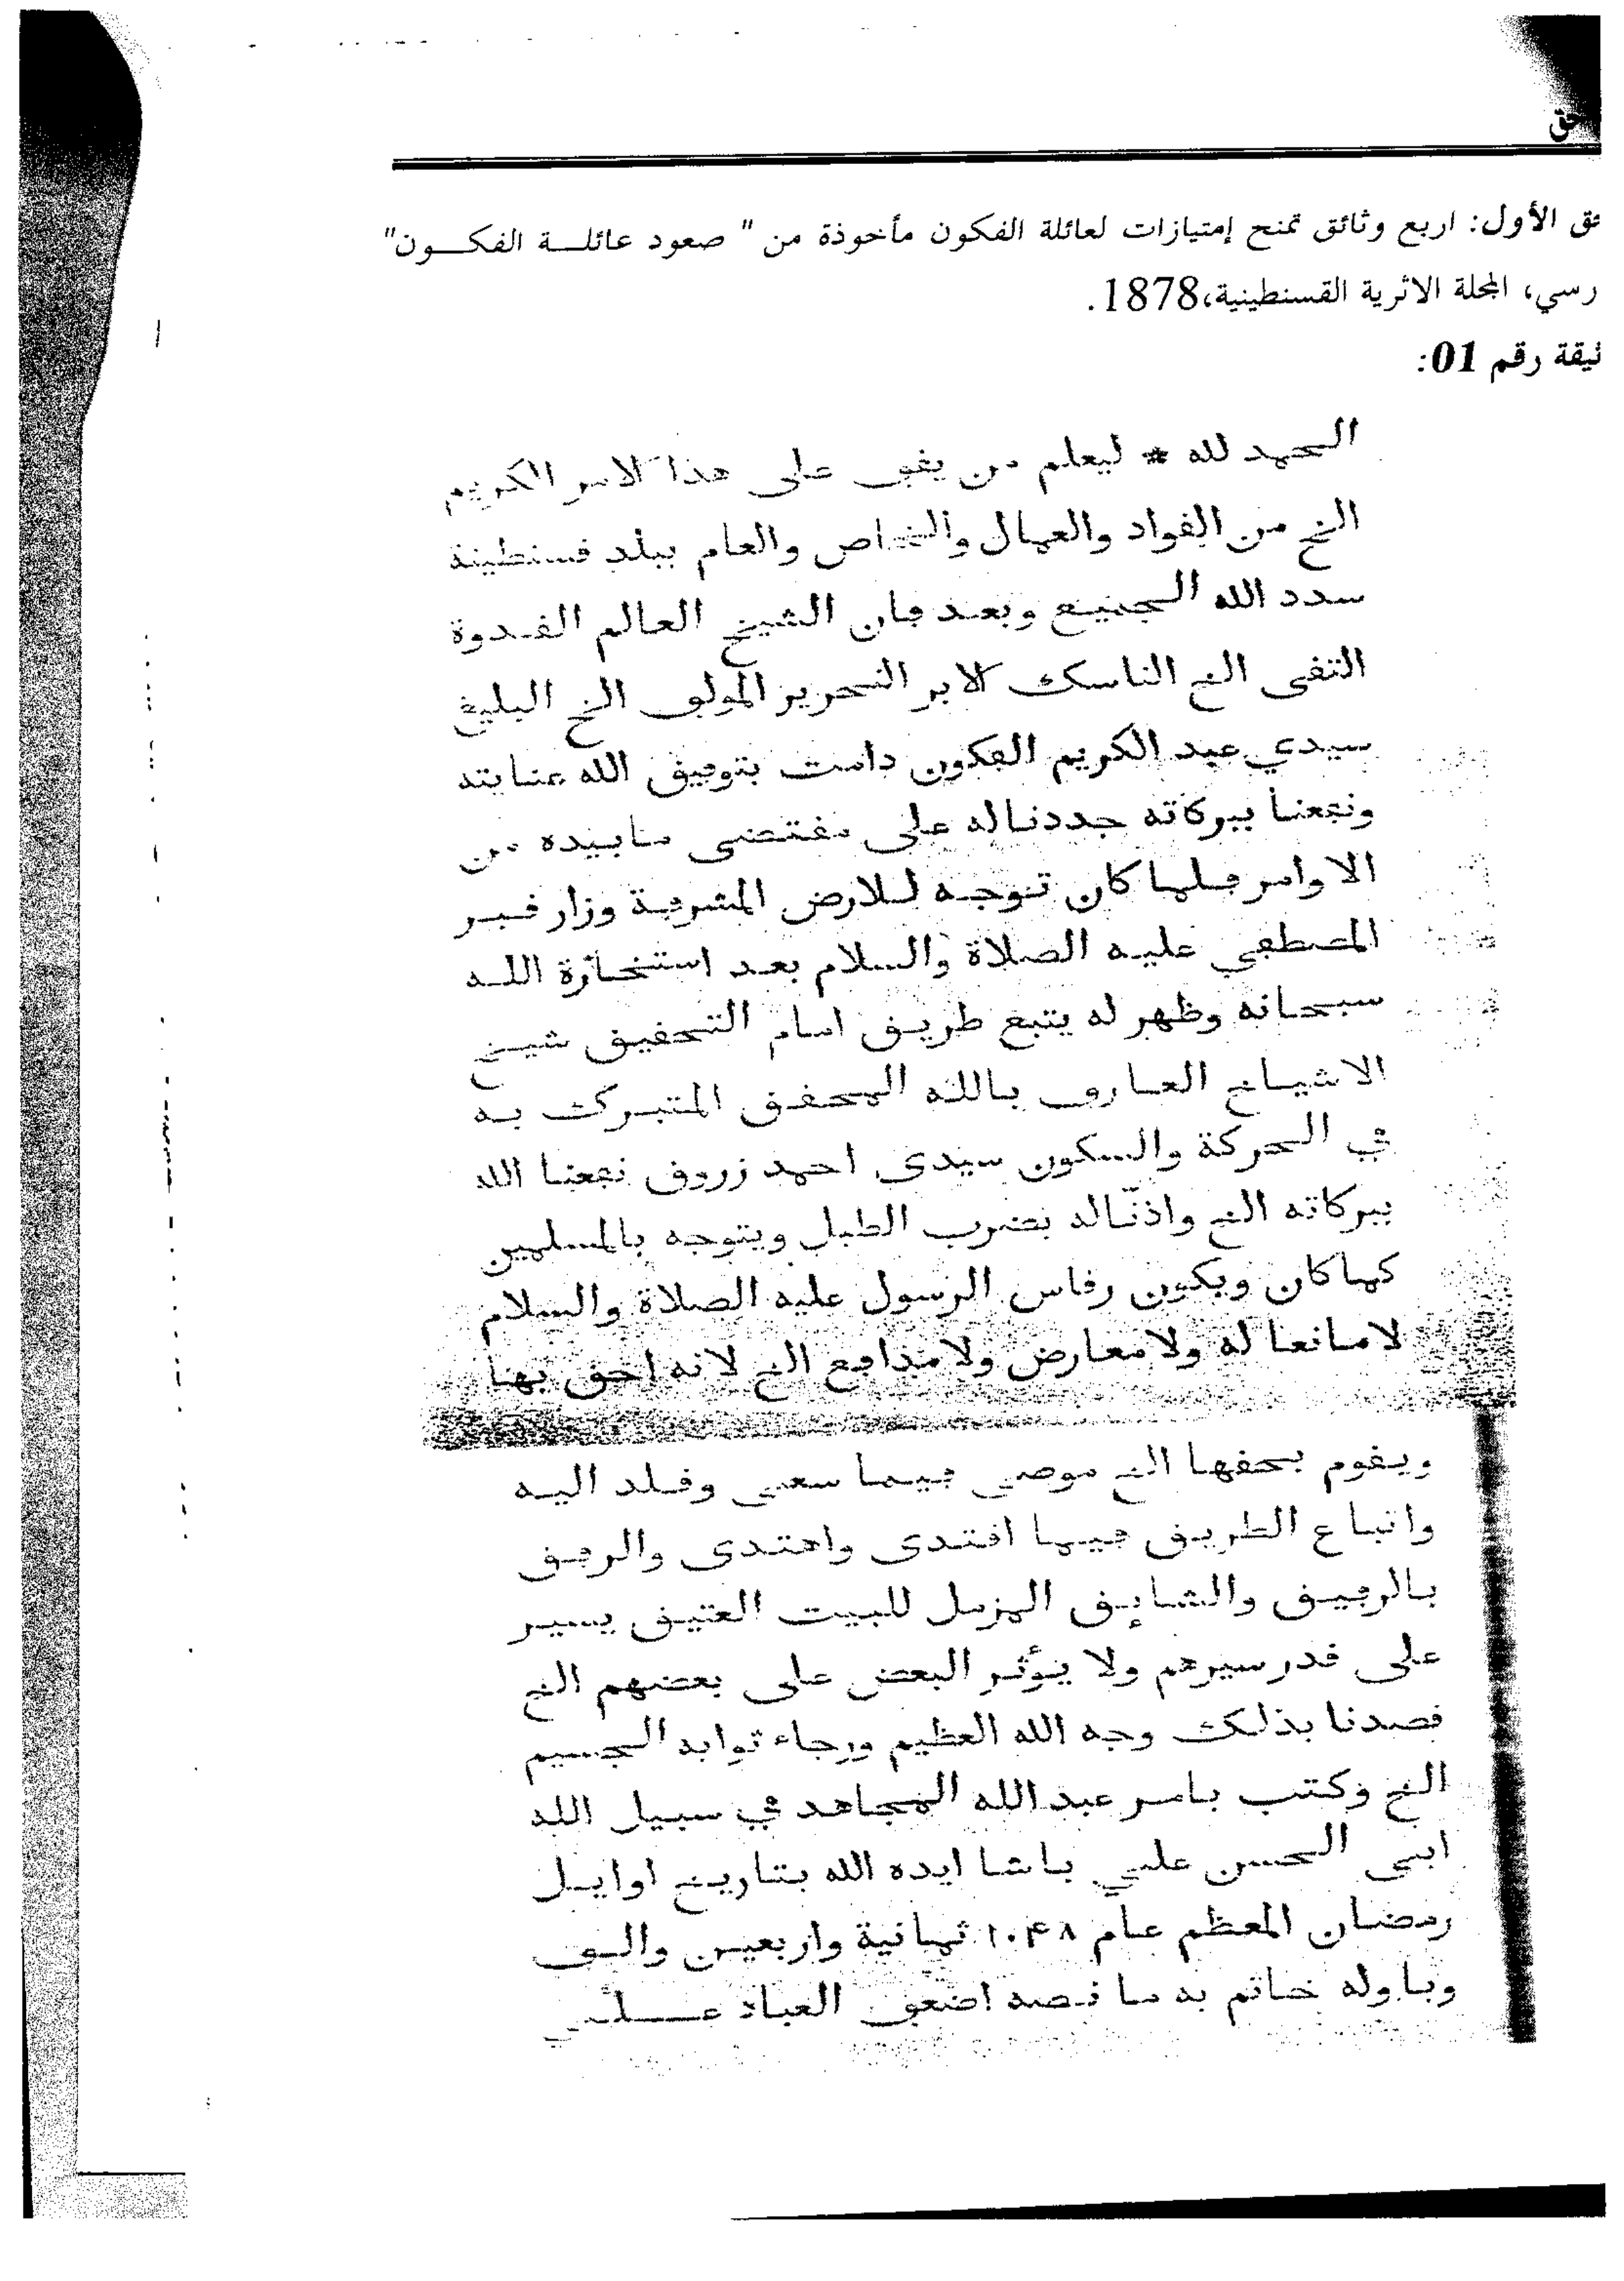 حق
ئق الأول: اربع وثائق تمنح إمتيازات لعائلة الفكون مأخوذة من " صعود عائلـــة الفكـــون"
رسي، المجلة الاثرية القسنطينية،1878.
ثيقة رقم 01:
الحمد لله * ليعلم من يڧف على هذا الامر الكريم
الخ من الڧواد والعمال والخاص والعام ببلد ڧسنطينة
سدد الله الجميع وبعد ڢان الشيخ العالم الڧدوة
التڧى الخ الناسك الابر النحرير المولڢ الخ البليغ
سيدي عبد الكريم الڢكون دامت بتوڢيڧ الله عنايته
ونڢعنا ببركاته جددنا له على مڧتضى ما بيده من
الاوامر ڢلما كان توجه للارض المشرڢة وزار ڧبر
المصطڢي عليه الصلاة والسلام بعد استخارة الله
سبحانه وظهر له يتبع طريڧ امام التحڧيڧ شيخ
الاشياخ العارڢ بالله المحڧڧ المتبرك به
ڢي الحركة والسكون سيدى احمد زروڧ نڢعنا الله
ببركاته الخ واذنّا له بضرب الطبل ويتوجه بالمسلمين
كما كان ويكون رڧاس الرسول عليه الصلاة والسلام
لا مانعا له ولا معارض ولا مداڢع الخ لانه احڧ بها
ويڧوم بحڧها الخ موصى ڢيما سعى وڧلد اليه
واتباع الطريڧ ڢيما اڧتدى واهتدى والرڢڧ
بالرڢيڧ والشايڧ المزمل للبيت العتيڧ يسير
على ڧدر سيرهم ولا يؤثر البعض على بعضهم الخ
ڧصدنا بذلك وجه الله العظيم ورجاء ثوابه الجسيم
الخ وكتب بامر عبد الله المجاهد ڢي سبيل الله
ابى الحسن علي باشا ايده الله بتاريخ اوايل
رمضان المعظم عام ١٠۴٨ ثمانية واربعين والڢ
وباوله خاتم به ما نصه اضعڢ العباد علي